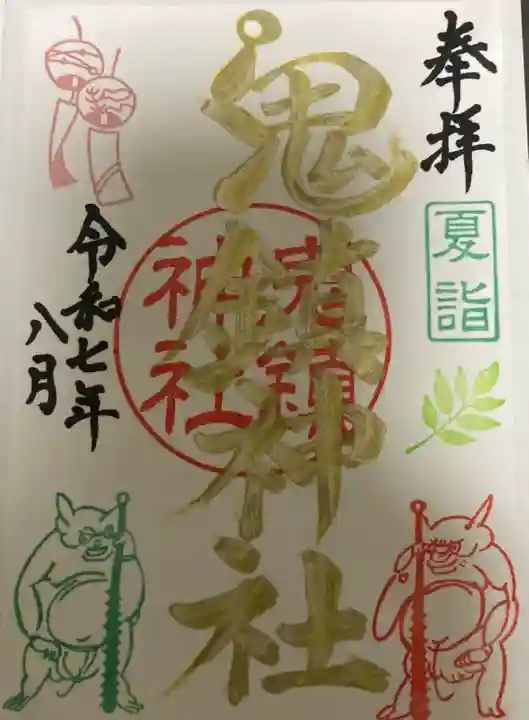 奉拝
夏詣
鬼鎮神社
鎮
神社
令和七年
八月